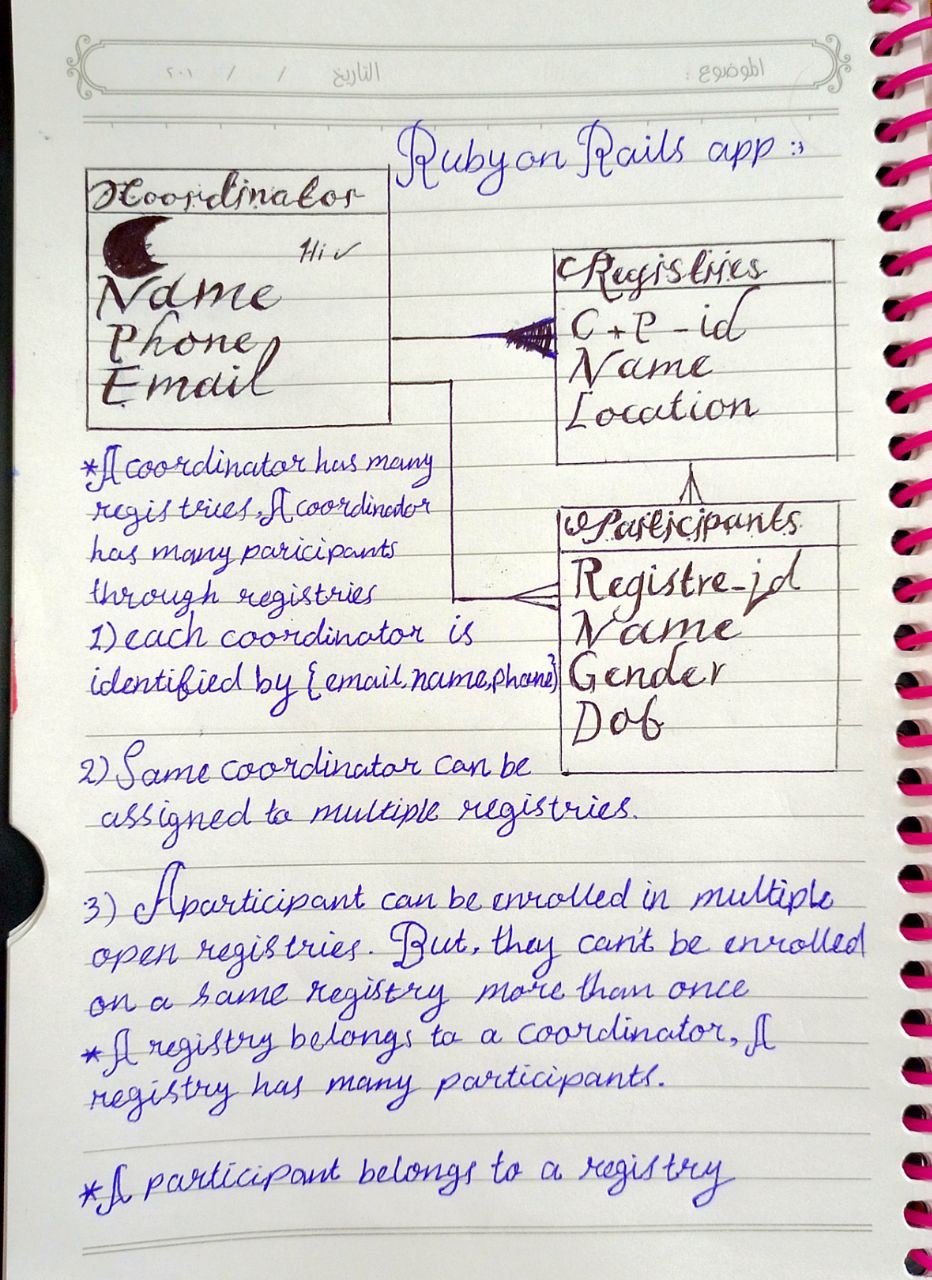 الموضوع :
التاريخ / / ٢٠١
Ruby on Rails app :
Coordinator
Hi
Name
Phone
Email
Registries
C + P - id
Name
Location
*A coordinator has many
registries. A coordinator
has many paricipants
through registries
Participants
Registre_id
Name
Gender
Dob
1) each coordinator is
identified by {email, name, phone}
2) Same coordinator can be
assigned to multiple registries.
3) A participant can be enrolled in multiple
open registries. But, they can't be enrolled
on a same registry more than once
*A registry belongs to a coordinator, A
registry has many participants.
*A participant belongs to a registry